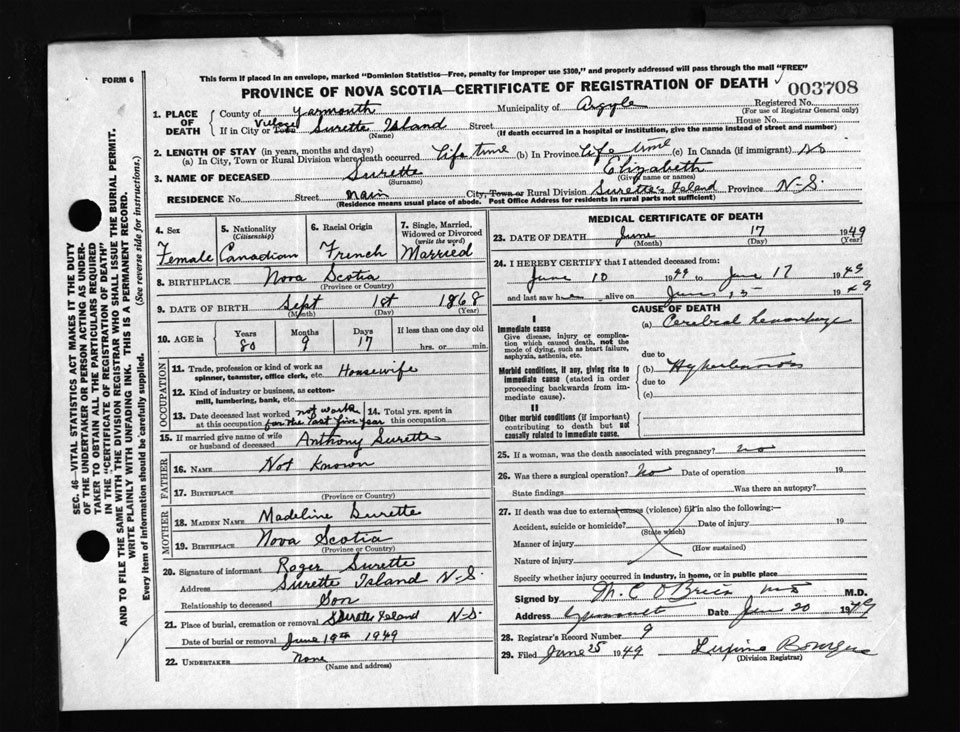 FORM 6
This form if placed in an envelope, marked "Dominion Statistics—Free, penalty for improper use $300," and properly addressed will pass through the mail "FREE"
PROVINCE OF NOVA SCOTIA—CERTIFICATE OF REGISTRATION OF DEATH
003708
1. PLACE OF DEATH
County of Yarmouth Municipality of Argyle Registered No.
(For use of Registrar General only)
If in City or Town Village Surette Island Street House No.
(Name) (If death occurred in a hospital or institution, give the name instead of street and number)
2. LENGTH OF STAY (in years, months and days)
(a) In City, Town or Rural Division where death occurred Life time (b) In Province Life time (c) In Canada (if immigrant)
3. NAME OF DECEASED Surette Elizabeth
(Surname) (Given name or names)
RESIDENCE No. Street City, Town or Rural Division Surette's Island Province N-S.
(Residence means usual place of abode. Post Office Address for residents in rural parts not sufficient)
4. Sex Female
5. Nationality (Citizenship) Canadian
6. Racial Origin French
7. Single, Married, Widowed or Divorced (write the word) Married
8. BIRTHPLACE Nova Scotia
(Province or Country)
9. DATE OF BIRTH Sept 1st 1868
(Month) (Day) (Year)
10. AGE in Years Months Days If less than one day old
80 9 17 hrs. or min.
OCCUPATION
11. Trade, profession or kind of work as spinner, teamster, office clerk, etc. Housewife
12. Kind of industry or business, as cotton-mill, lumbering, bank, etc.
13. Date deceased last worked at this occupation not work for the last five year
14. Total yrs. spent in this occupation
15. If married give name of wife or husband of deceased Anthony Surette
FATHER
16. NAME Not Known
17. BIRTHPLACE
(Province or Country)
MOTHER
18. MAIDEN NAME Madeline Surette
19. BIRTHPLACE Nova Scotia
(Province or Country)
20. Signature of informant Roger Surette
Address Surette Island N-S.
Relationship to deceased Son
21. Place of burial, cremation or removal Surette Island N-S.
Date of burial or removal June 19th 1949
22. UNDERTAKER None
(Name and address)
MEDICAL CERTIFICATE OF DEATH
23. DATE OF DEATH June 17 1949
(Month) (Day) (Year)
24. I HEREBY CERTIFY that I attended deceased from:
June 10 1949 to June 17 1949
and last saw h alive on June 15 1949
CAUSE OF DEATH
I
Immediate cause
Give disease, injury or complication which caused death, not the mode of dying, such as heart failure, asphyxia, asthenia, etc.
(a) Cerebral
due to
Morbid conditions, if any, giving rise to immediate cause (stated in order proceeding backwards from immediate cause).
(b)
due to
(c)
II
Other morbid conditions (if important) contributing to death but not causally related to immediate cause.
25. If a woman, was the death associated with pregnancy? no
26. Was there a surgical operation? No Date of operation 19
State findings Was there an autopsy?
27. If death was due to external causes (violence) fill in also the following:—
Accident, suicide or homicide? Date of injury 19
(State which)
Manner of injury
(How sustained)
Nature of injury
Specify whether injury occurred in industry, in home, or in public place
Signed by M. C O'Brien M.D.
Address Yarmouth Date Jun 20 1949
28. Registrar's Record Number 9
29. Filed June 25 1949
(Division Registrar)
SEC. 46—VITAL STATISTICS ACT MAKES IT THE DUTY
OF THE UNDERTAKER OR PERSON ACTING AS UNDERTAKER TO OBTAIN ALL THE PARTICULARS REQUIRED
IN THE "CERTIFICATE OF REGISTRATION OF DEATH"
AND TO FILE THE SAME WITH THE DIVISION REGISTRAR WHO SHALL ISSUE THE BURIAL PERMIT.
WRITE PLAINLY WITH UNFADING INK. THIS IS A PERMANENT RECORD.
Every item of information should be carefully supplied. (See reverse side for instructions.)